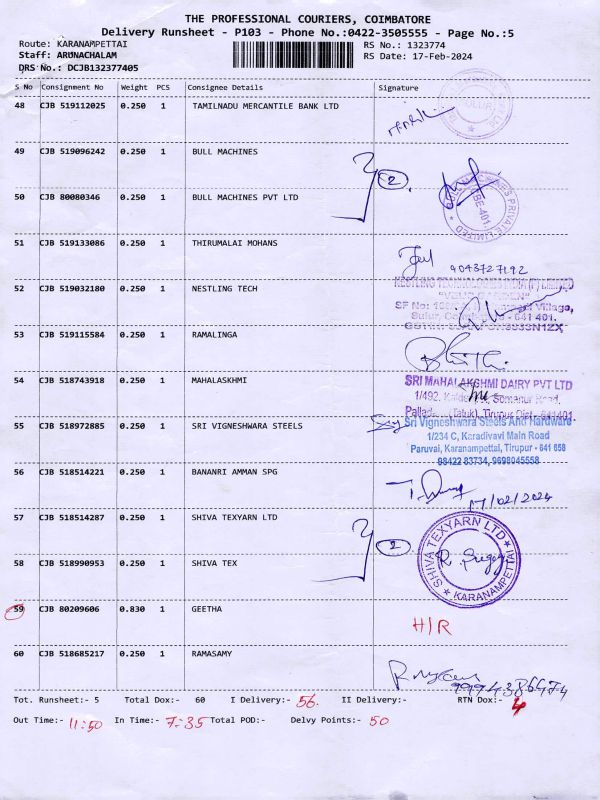 THE PROFESSIONAL COURIERS, COIMBATORE
Delivery Runsheet - P103 - Phone No.:0422-3505555 - Page No.:5
Route: KARANAMPETTAI
RS No.: 1323774
Staff: ARUNACHALAM
RS Date: 17-Feb-2024
DRS No.: DCJB132377405
S No Consignment No Weight PCS Consignee Details Signature
48 CJB 519112025 0.250 1 TAMILNADU MERCANTILE BANK LTD
49 CJB 519096242 0.250 1 BULL MACHINES
2
50 CJB 80080346 0.250 1 BULL MACHINES PVT LTD
51 CJB 519133086 0.250 1 THIRUMALAI MOHANS
9043727192
52 CJB 519032180 0.250 1 NESTLING TECH
NESTLING TECHNOLOGIES INDIA (P) LIMITED
SF No: Village,
Sulur, - 641 401.
53 CJB 519115584 0.250 1 RAMALINGA
54 CJB 518743918 0.250 1 MAHALASKHMI
SRI MAHALAKSHMI DAIRY PVT LTD
1/492, Somanur Road,
Palladam (Taluk), Tirupur Dist - 641401
55 CJB 518972885 0.250 1 SRI VIGNESHWARA STEELS
Sri Vigneshwara Steels And Hardware
1/234 C, Karadivavi Main Road
Paruvai, Karanampettai, Tirupur - 641 658
98422 83734, 9698045558
56 CJB 518514221 0.250 1 BANANRI AMMAN SPG
17/02/2024
57 CJB 518514287 0.250 1 SHIVA TEXYARN LTD
2
SHIVA TEXYARN LTD
★ KARANAMPETTAI ★
58 CJB 518990953 0.250 1 SHIVA TEX
59 CJB 80209606 0.830 1 GEETHA
H/R
60 CJB 518685217 0.250 1 RAMASAMY
Tot. Runsheet:- 5 Total Dox:- 60 I Delivery:- 56. II Delivery:- RTN Dox:- 4
Out Time:- 11:50 In Time:- 7:35 Total POD:- Delvy Points:- 50